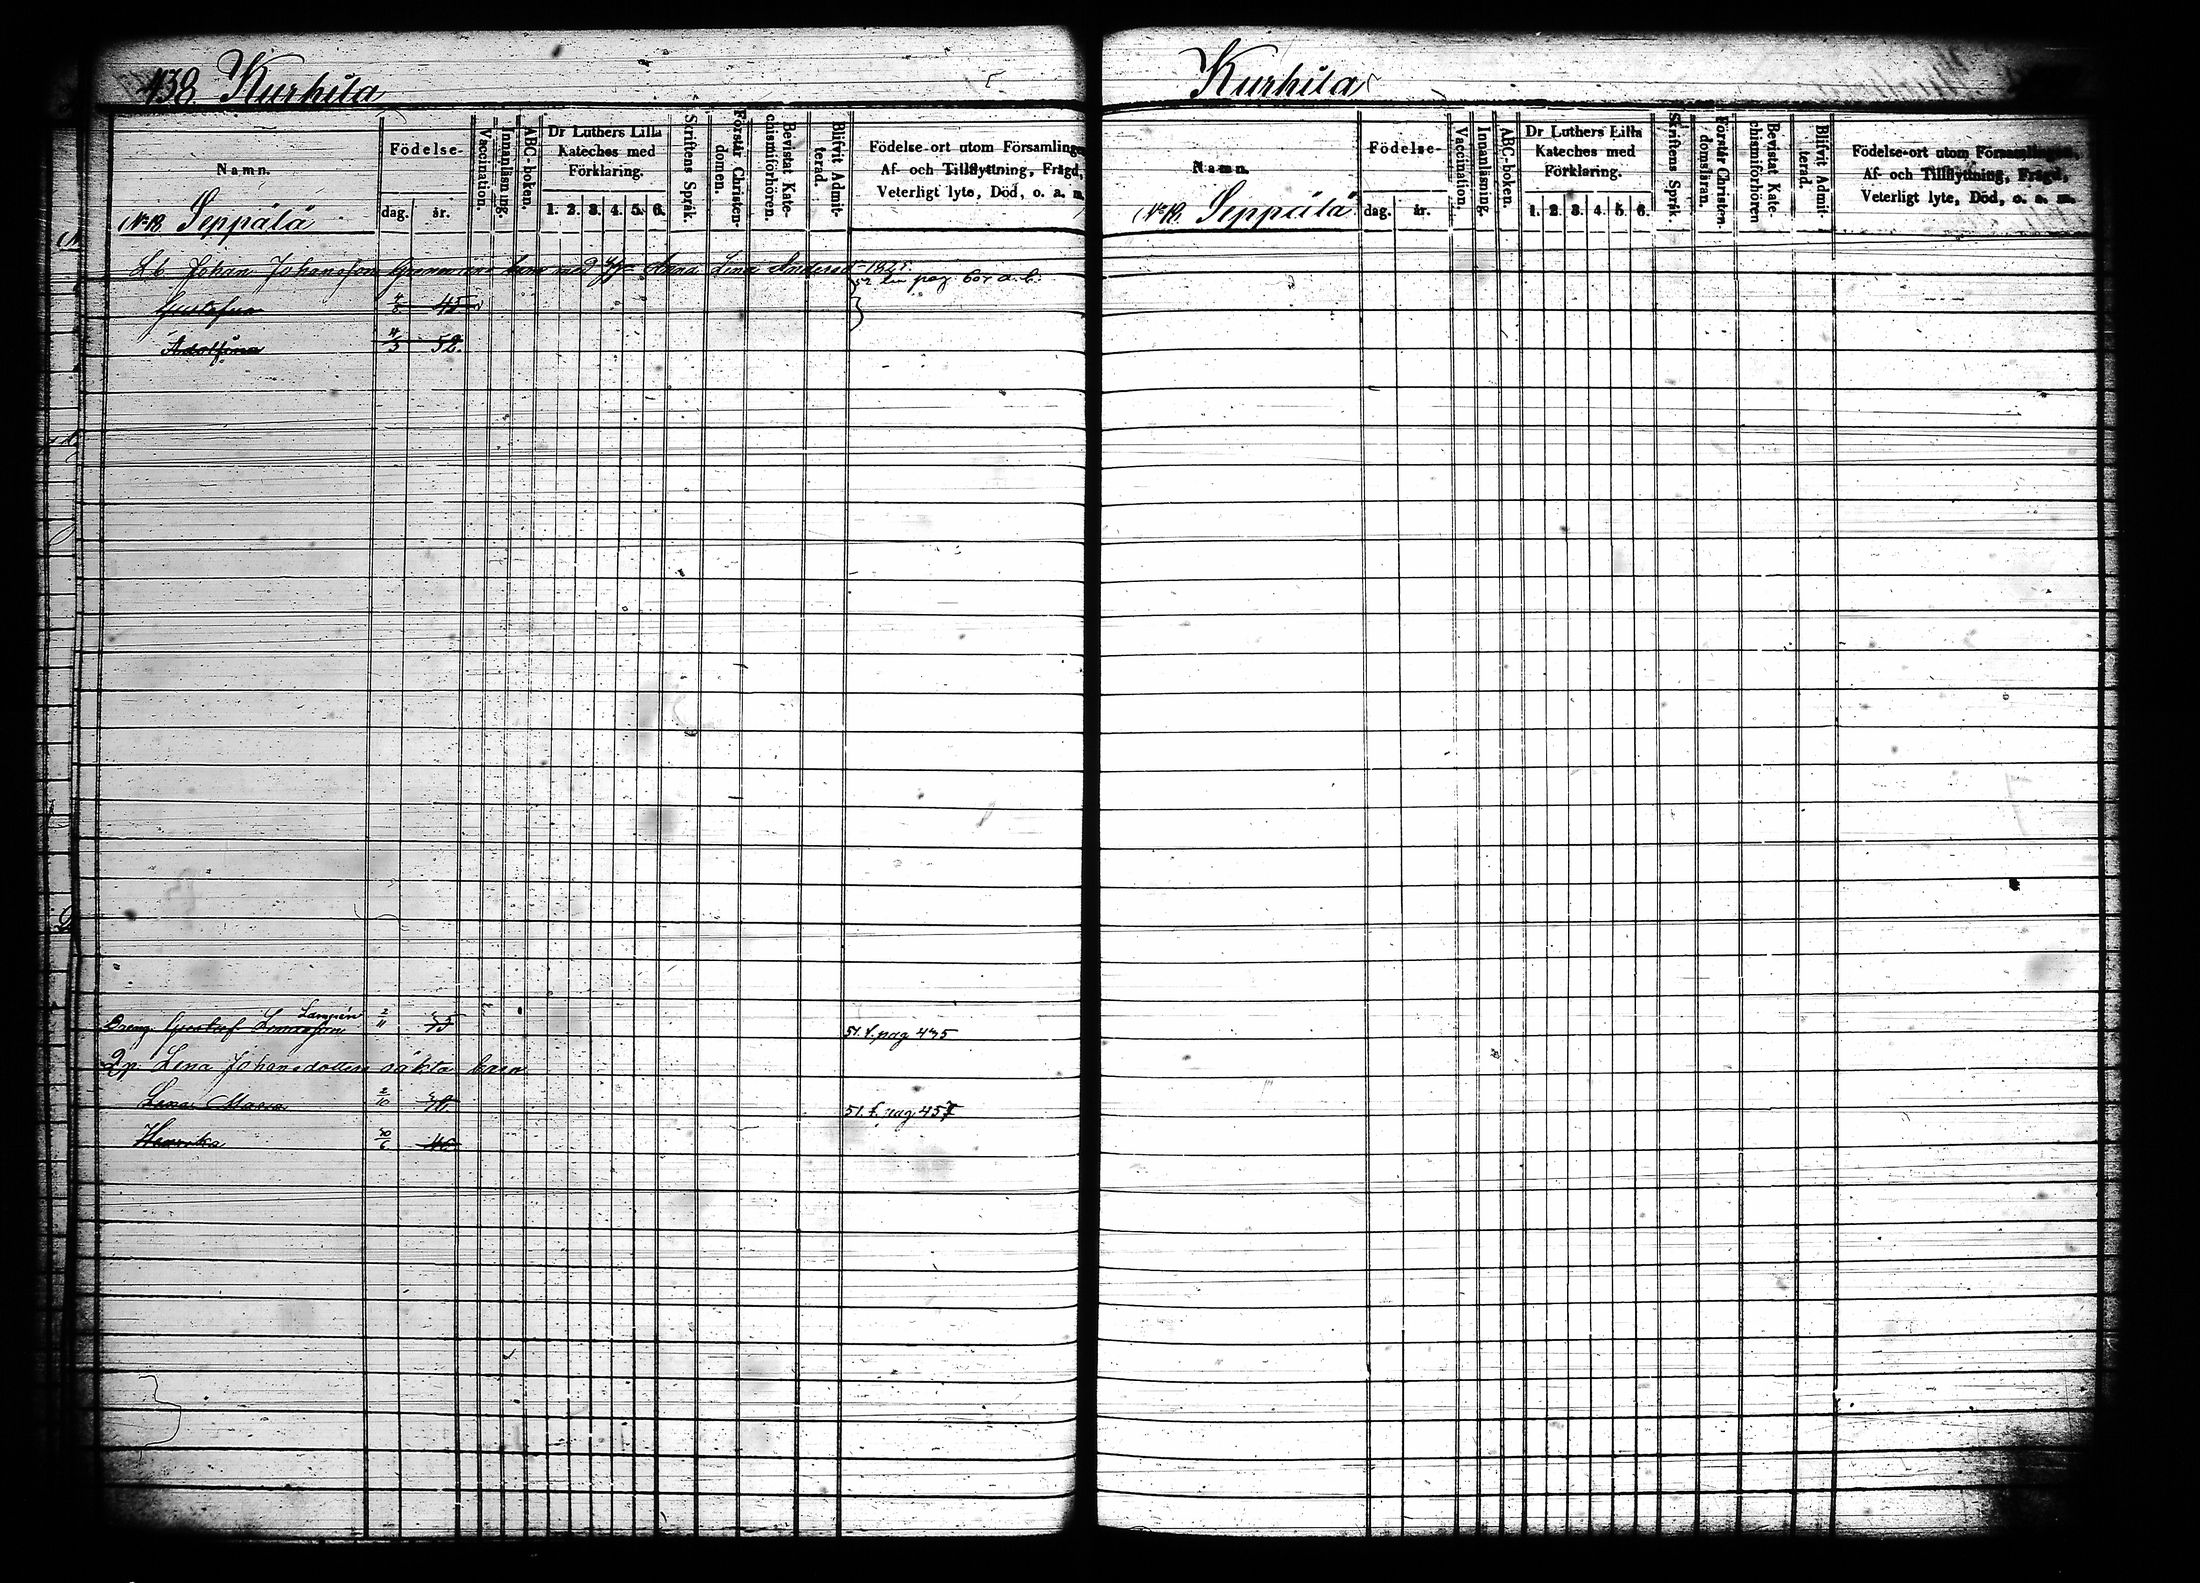 438 Kurhila
Namn.
Födelse-
dag. år.
Vaccination.
Innanläsning.
ABC-boken.
Dr Luthers Lilla
Kateches med
Förklaring.
1. 2. 3. 4. 5. 6.
Skriftens Språk.
Förstår Christen-
domen.
Bevistat Kate-
chismiförhören.
Blifvit Admit-
terad.
Födelse-ort utom Församlingen
Af- och Tillflyttning, Frägd,
Veterligt lyte, Död, o. a. m.
No 18. Seppälä
Johan Johansson barn med Anna Lena
pag
Gustafva 45
Adolfina 4/3 52.
Lampén
Dreng Gustaf 2/11 51. f. pag 435
Lena Johansdotters oäkta barn
Lena Maria 2/10 51. f. pag 457
Henrika 46
Kurhila
Namn.
Födelse-
dag. år.
Vaccination.
Innanläsning.
ABC-boken.
Dr Luthers Lilla
Kateches med
Förklaring.
1. 2. 3. 4. 5. 6.
Skriftens Språk.
Förstår Christen-
domsläran.
Bevistat Kate-
chismiförhören
Blifvit Admit-
terad.
Födelse-ort utom Församlingen,
Af- och Tillflyttning, Frägd,
Veterligt lyte, Död, o. a. m.
No 18. Seppälä